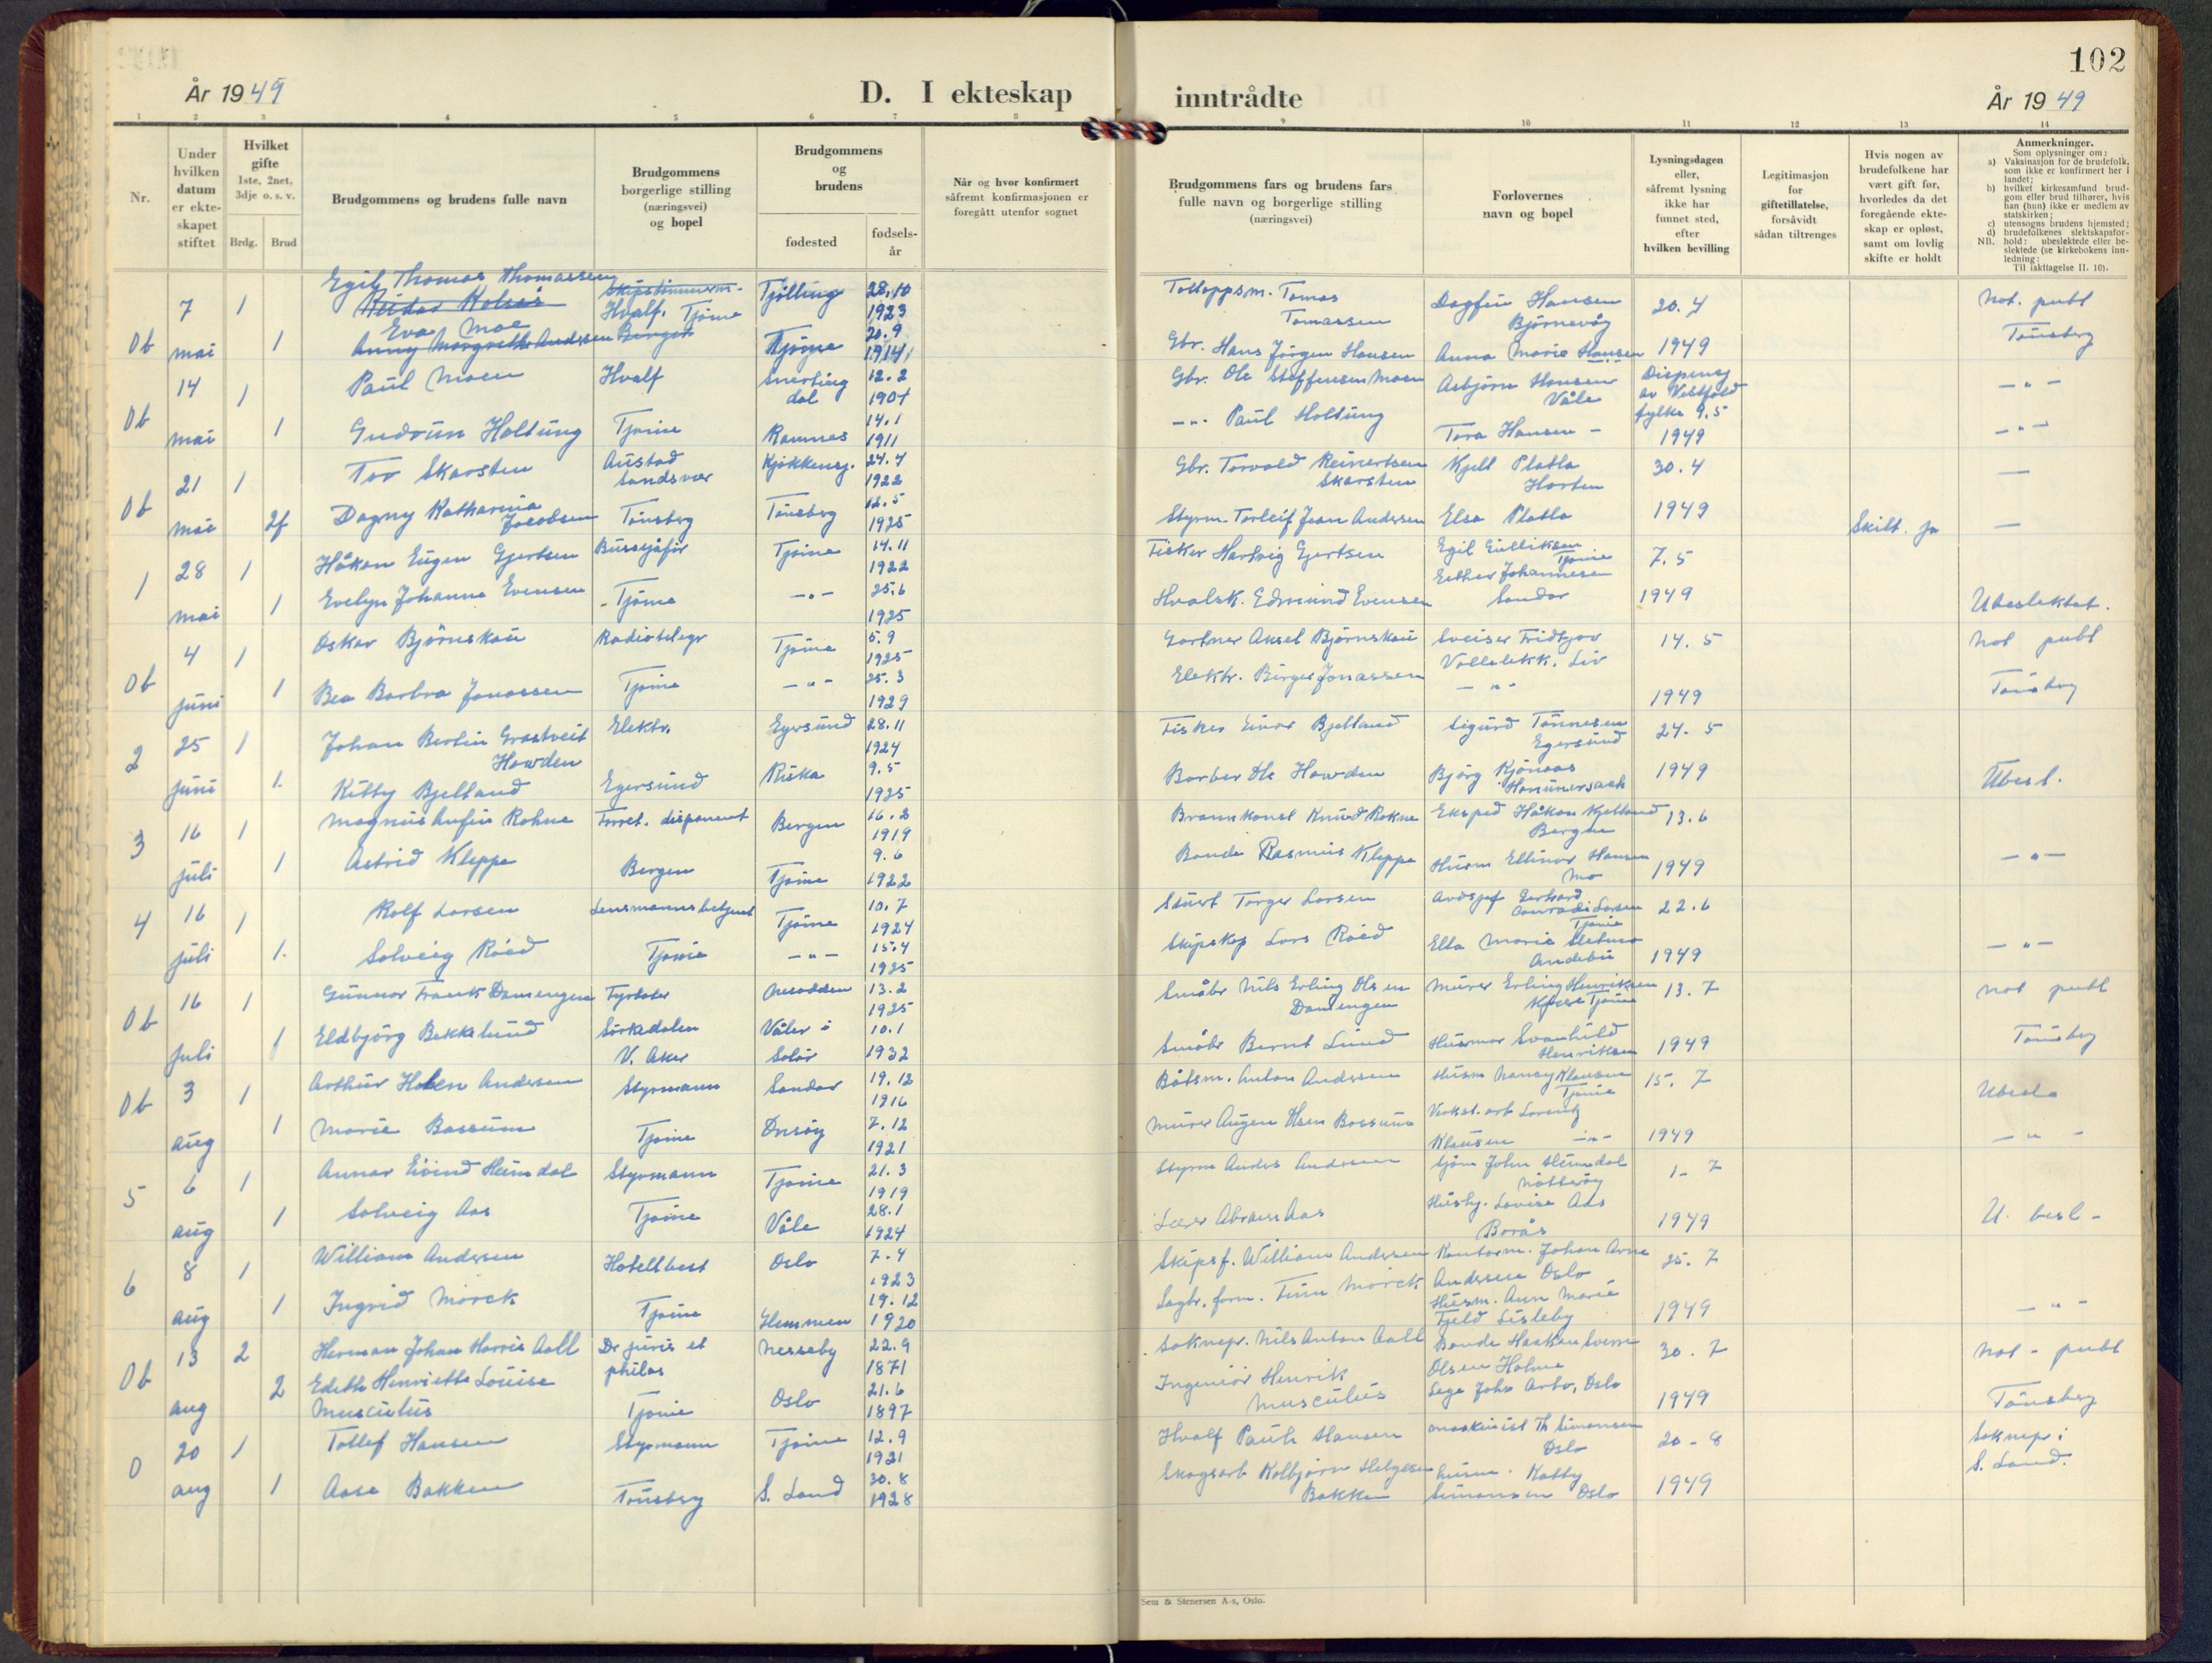 102
År 1949
D. I ekteskap
inntrådte
År 1949
1 2 3 4 5 6 7 8
9 10 11 12 13 14
Nr.
Under
hvilken
datum
er ekte-
skapet
stiftet
Hvilket
gifte
1ste, 2net,
3dje o. s. v.
Brdg. Brud
Brudgommens og brudens fulle navn
Brudgommens
borgerlige stilling
(næringsvei)
og bopel
Brudgommens
og
brudens
fødested
fødsels-
år
Når og hvor konfirmert
såfremt konfirmasjonen er
foregått utenfor sognet
Brudgommens fars og brudens fars
fulle navn og borgerlige stilling
(næringsvei)
Forlovernes
navn og bopel
Lysningsdagen
eller,
såfremt lysning
ikke har
funnet sted,
efter
hvilken bevilling
Legitimasjon
for
giftetillatelse,
forsåvidt
sådan tiltrenges
Hvis nogen av
brudefolkene har
vært gift før,
hvorledes da det
foregående ekte-
skap er opløst,
samt om lovlig
skifte er holdt
Anmerkninger.
Som oplysninger om:
a) Vaksinasjon for de brudefolk,
som ikke er konfirmert her i
landet;
b) hvilket kirkesamfund brud-
gom eller brud tilhører, hvis
han (hun) ikke er medlem av
statskirken;
c) utensogns brudens hjemsted;
d) brudefolkenes slektskapsfor-
NB. hold: ubeslektede eller be-
slektede (se kirkebokens inn-
ledning:
Til iakttagelse II. 10).
Ob 7 mai 1 1
Egil Thomas Thomassen
Eva Moe
Anny Margrethe Andersen
Hvalf. Tjøme
Tjølling 28.10 1923
Tjøme 20.9 1914
Tomas Tomassen
Gbr. Hans Jörgen Hansen
Dagfin Hansen Björnevåg
Anna Marie Hansen
20.4 1949
Not. publ Tönsberg
Ob 14 mai 1 1
Paul Moen
Gudrun Holtung
Hvalf
Tjøme
12.2 1901
Ramnes 14.1 1911
Gbr. Ole Steffensen Moen
-"- Paul Holtung
Asbjörn Hansen Våle
Tora Hansen -
Dispens av Vestfold fylke 9.5 1949
-"-
-"-
Ob 21 mai 1 2f
Tor Skarsten
Dagny Katharina Jacobsen
Austad Sandsvær
Tönsberg
24.4 1922
Tönsberg 12.5 1925
Gbr. Torvald Reinertsen Skarsten
Styrm. Torleif Jean Andersen
Kjell Platla Horten
Elsa Platla
30.4 1949
Skilt. ja
1 28 mai 1 1
Håkon Eugen Gjertsen
Evelyn Johanne Evensen
Bussjåför
Tjøme
Tjøme 14.11 1922
-"- 25.6 1925
Fisker Hartvig Gjertsen
Hvalsk. Edmund Evensen
Egil Gulliksen Tjøme
Esther Johannesen Sandar
7.5 1949
Ubeslektet.
Ob 4 juni 1 1
Oskar Björnskau
Bea Barbra Jonassen
Radiotelegr
Tjøme
Tjøme 5.9 1925
-"- 25.3 1929
Gartner Aksel Björnskau
Elektr. Birger Jonassen
Sveiser Fridtjov Vollelekk. Liv
-"-
14.5 1949
Not publ Tönsberg
2 25 juni 1 1.
Johan Bertin Howden
Kitty Bjelland
Elektr.
Egersund
Egersund 28.11 1924
Riska 9.5 1925
Fisker Einar Bjelland
Barber Ole Howden
Sigurd Tönnesen Egersund
Bjørg Kjönaas
24.5 1949
Ubesl.
3 16 juli 1 1
Magnus Anfin Rohne
Astrid Kleppe
Forret. disponent
Bergen
Bergen 16.2 1919
Tjøme 9.6 1922
Knud Rokne
Bonde Rasmus Kleppe
Eksped Håkon Kjelland Bergen
Husm Ellinor Hansen Mo
13.6 1949
-"-
4 16 juli 1 1.
Rolf Larsen
Solveig Röed
Lensmannsbetjent
Tjøme
Tjøme 10.7 1924
-"- 15.4 1925
Stuert Torger Larsen
Skipskp Lars Röed
Gerhard Conradi Larsen Tjøme
Ella Marie Andebu
22.6 1949
-"-
Ob 16 juli 1 1
Gunnar Frank Damengen
Eldbjörg Bekkelund
Fyrböter
Sörkedalen V. Aker
Nesodden 13.2 1925
Våler i Solör 10.1 1932
Småbr Nils Erling Olsen Damengen
Småbr Bernt Lund
Murer Erling Henriksen Tjøme
Husmor Svanhild Henriksen
13.7 1949
Not publ Tönsberg
Ob 3 aug 1 1
Arthur Holen Andersen
Marie Bassum
Styrmann
Tjøme
Sandar 19.12 1916
Onsöy 7.12 1921
Båtsm. Anton Andersen
Murer Augen Olsen Bossum
Husm Nancy Klausen Tjøme
Verkst. arb Lorentz Klausen -"-
15.7 1949
Ubesl.
-"-
5 6 aug 1 1
Annar Eivind Heimdal
Solveig Aas
Styrmann
Tjøme
Tjøme 21.3 1919
Våle 28.1 1924
Styrm Anders Andersen
Lærer Abraham Aas
Sjöm John Heimdal Nötteröy
Husby. Lovise Aas Borås
1-7 1949
U. besl-
6 8 aug 1 1
William Andersen
Ingrid Mörck
Hotellbest
Tjøme
Oslo 7.4 1923
Hemmen 19.12 1920
Skipsf. William Andersen
Sagbr. form. Finn Mörck
Kontorm. Johan Arne Andersen Oslo
Husm. Ann Marie Fjeld Lisleby
25.7 1949
-"-
Ob 13 aug 2 2
Herman Johan Harris Aall
Edith Henriette Louise Musculus
Dr juris et philos
Tjøme
Nesseby 22.9 1871
Oslo 21.6 1897
Soknepr. Nils Anton Aall
Ingeniör Henrik Musculus
Bonde Haakon Sverre Olsen Holme
Lege John Arbo, Oslo
30.7 1949
Not - publ Tönsberg
0 20 aug 1 1
Tollef Hansen
Aase Bakken
Styrmann
Tönsberg
Tjøme 12.9 1921
S. Land 30.8 1928
Hvalf Paul Hansen
Skogsarb Kolbjörn Helgesen Bakken
Maskinist Th Simonsen Oslo
Husm. Kathy Simonsen Oslo
20-8 1949
Soknepr i S. Land.
Sem & Stenersen A-s, Oslo.